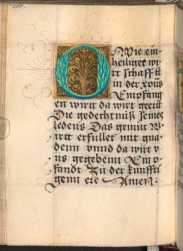 O Wie ein
heiliget wi
rt schafft
in der xpus
Empfang
en wirt da wirt geeert
Die gedechtnuß seines
leidens Das gemüt Wi
rt erfullet mit gna
denn vnnd da wirt v
ns gegebenn Ein p
fandt Zu der kunffti
genn ere Amen